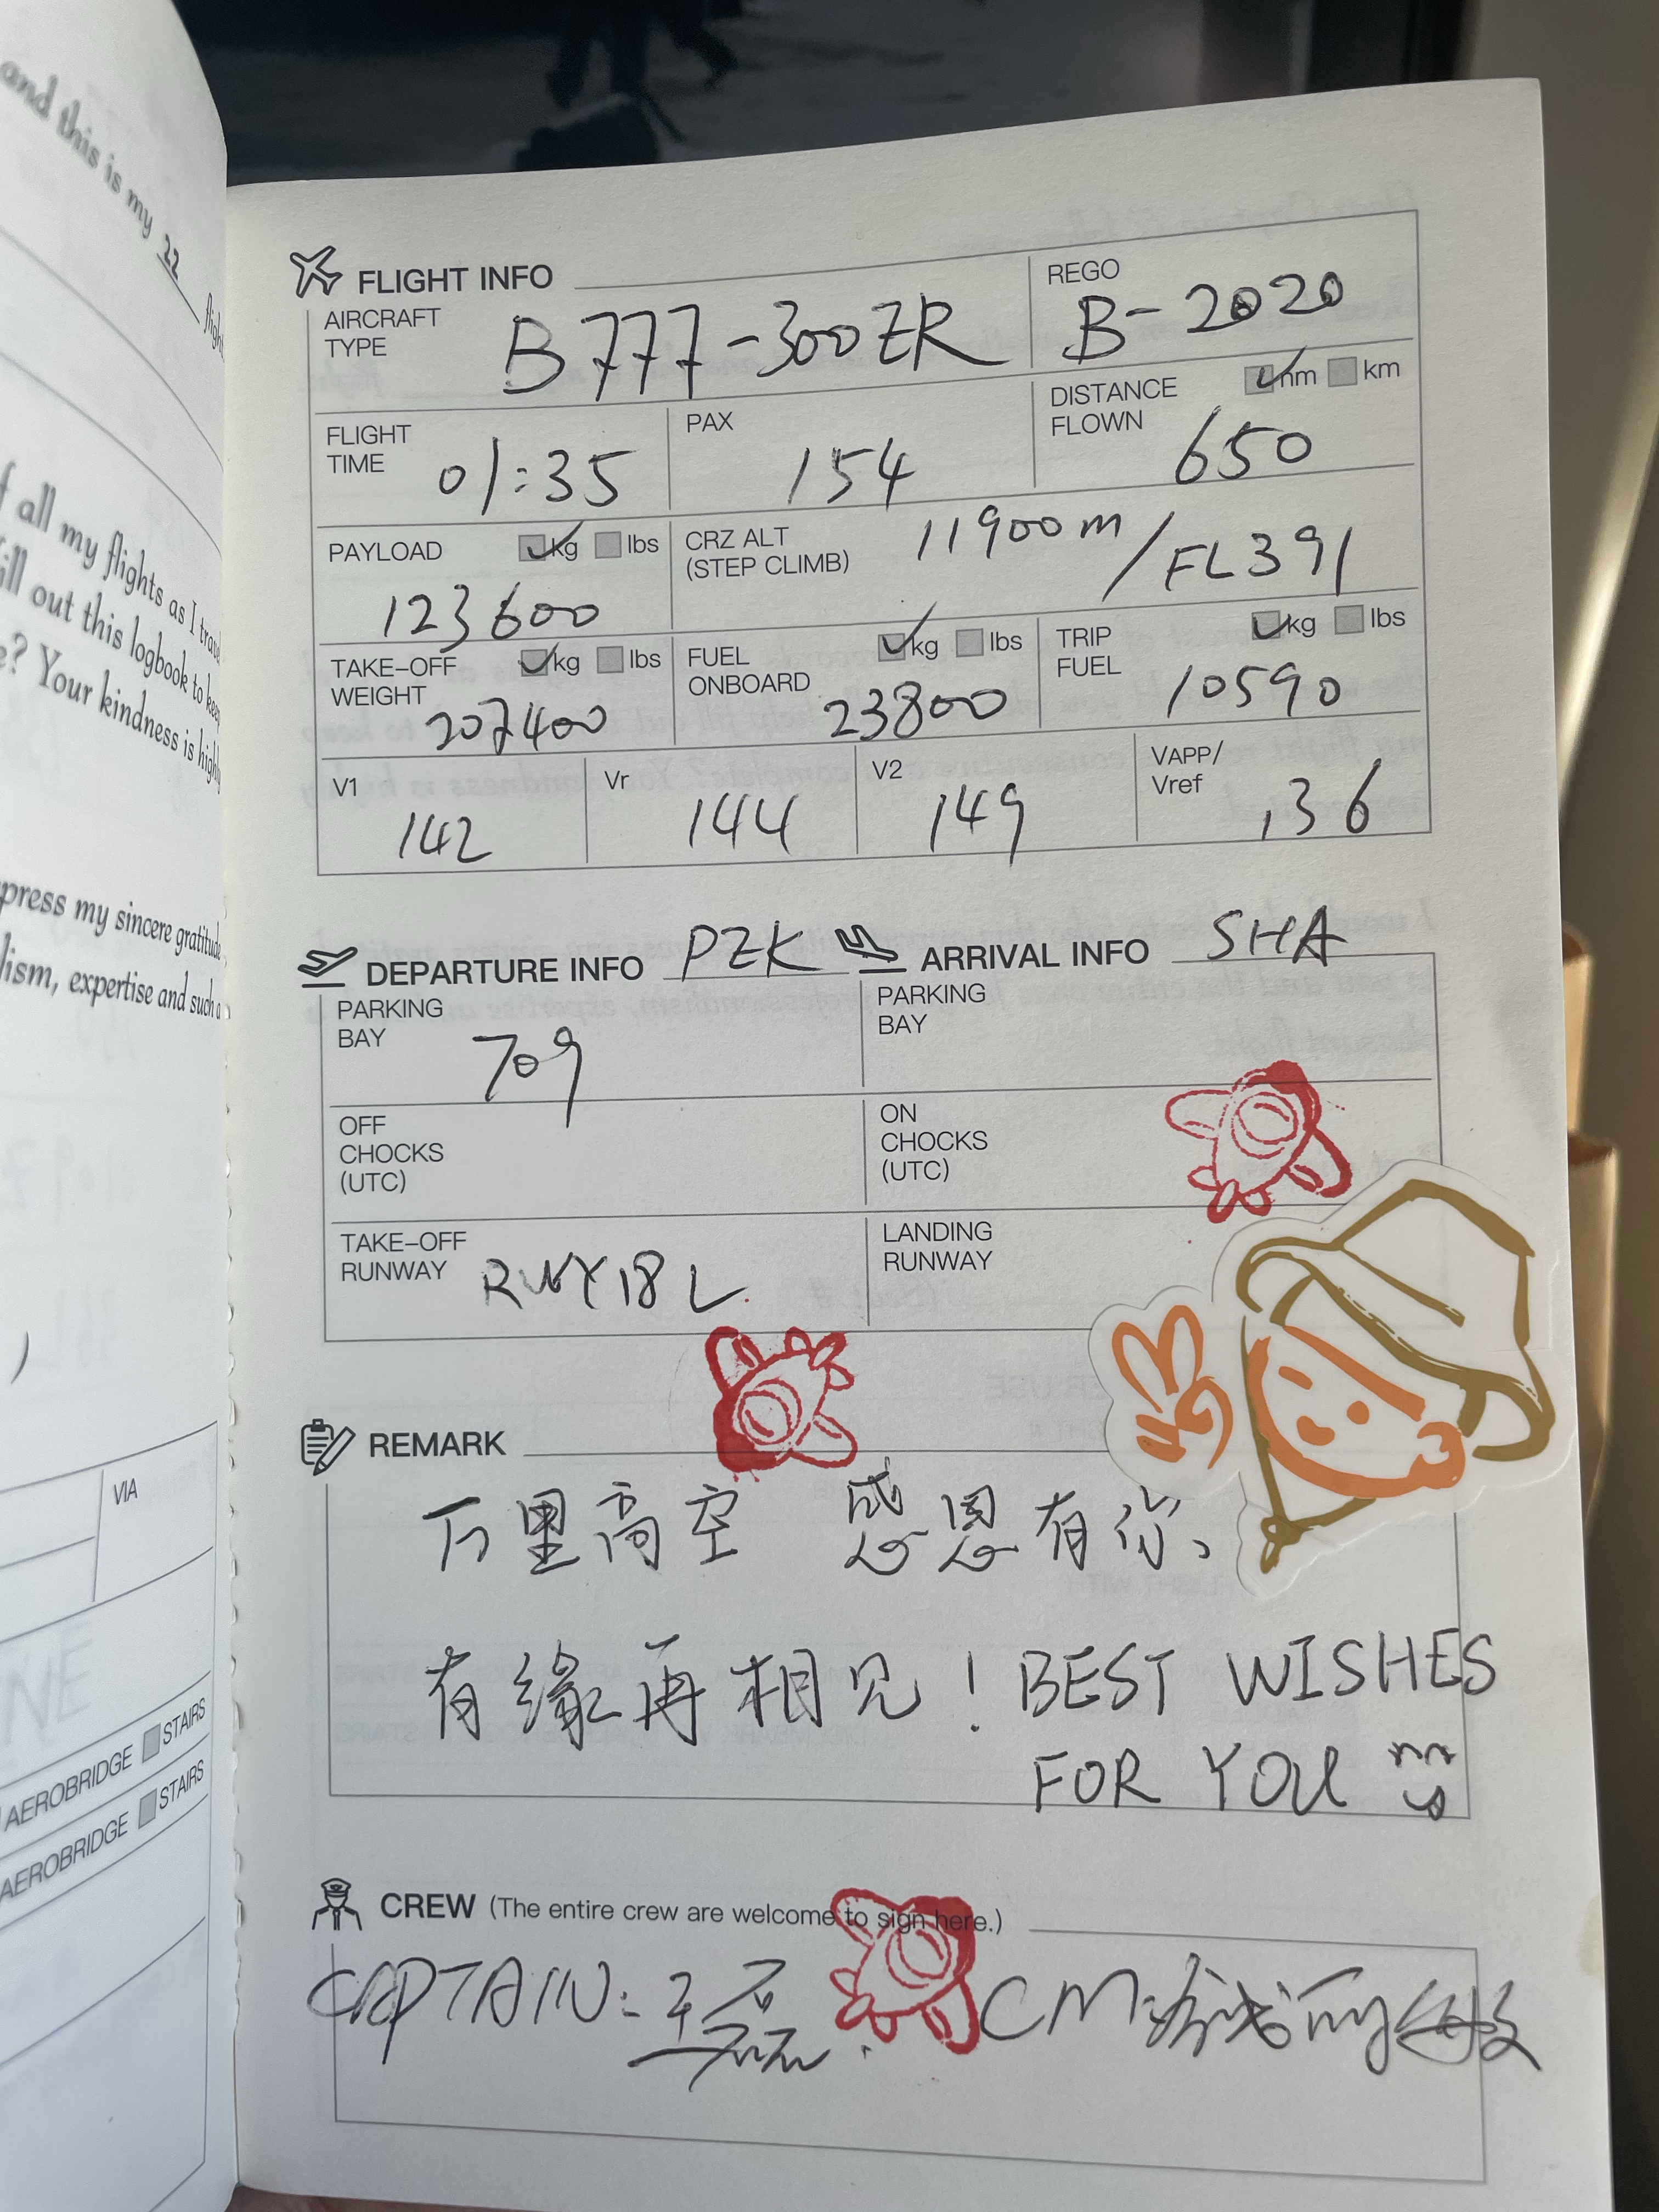 and this is my 22 flight
f all my flights as I trave
fill out this logbook to keep
e? Your kindness is highly
press my sincere gratitude
lism, expertise and such a
VIA
AEROBRIDGE STAIRS
AEROBRIDGE STAIRS
FLIGHT INFO
AIRCRAFT TYPE B777-300ER
REGO B-2020
FLIGHT TIME 01:35
PAX 154
DISTANCE FLOWN nm km 650
PAYLOAD kg lbs 123600
CRZ ALT (STEP CLIMB) 11900m/FL391
TAKE-OFF WEIGHT kg lbs 207400
FUEL ONBOARD kg lbs 23800
TRIP FUEL kg lbs 10590
V1 142
Vr 144
V2 149
VAPP/Vref 136
DEPARTURE INFO PEK
ARRIVAL INFO SHA
PARKING BAY 709
PARKING BAY
OFF CHOCKS (UTC)
ON CHOCKS (UTC)
TAKE-OFF RUNWAY RWY18L
LANDING RUNWAY
REMARK
万里高空 感恩有你、
有缘再相见！BEST WISHES
FOR YOU
CREW (The entire crew are welcome to sign here.)
CAPTAIN: 王磊 CM: